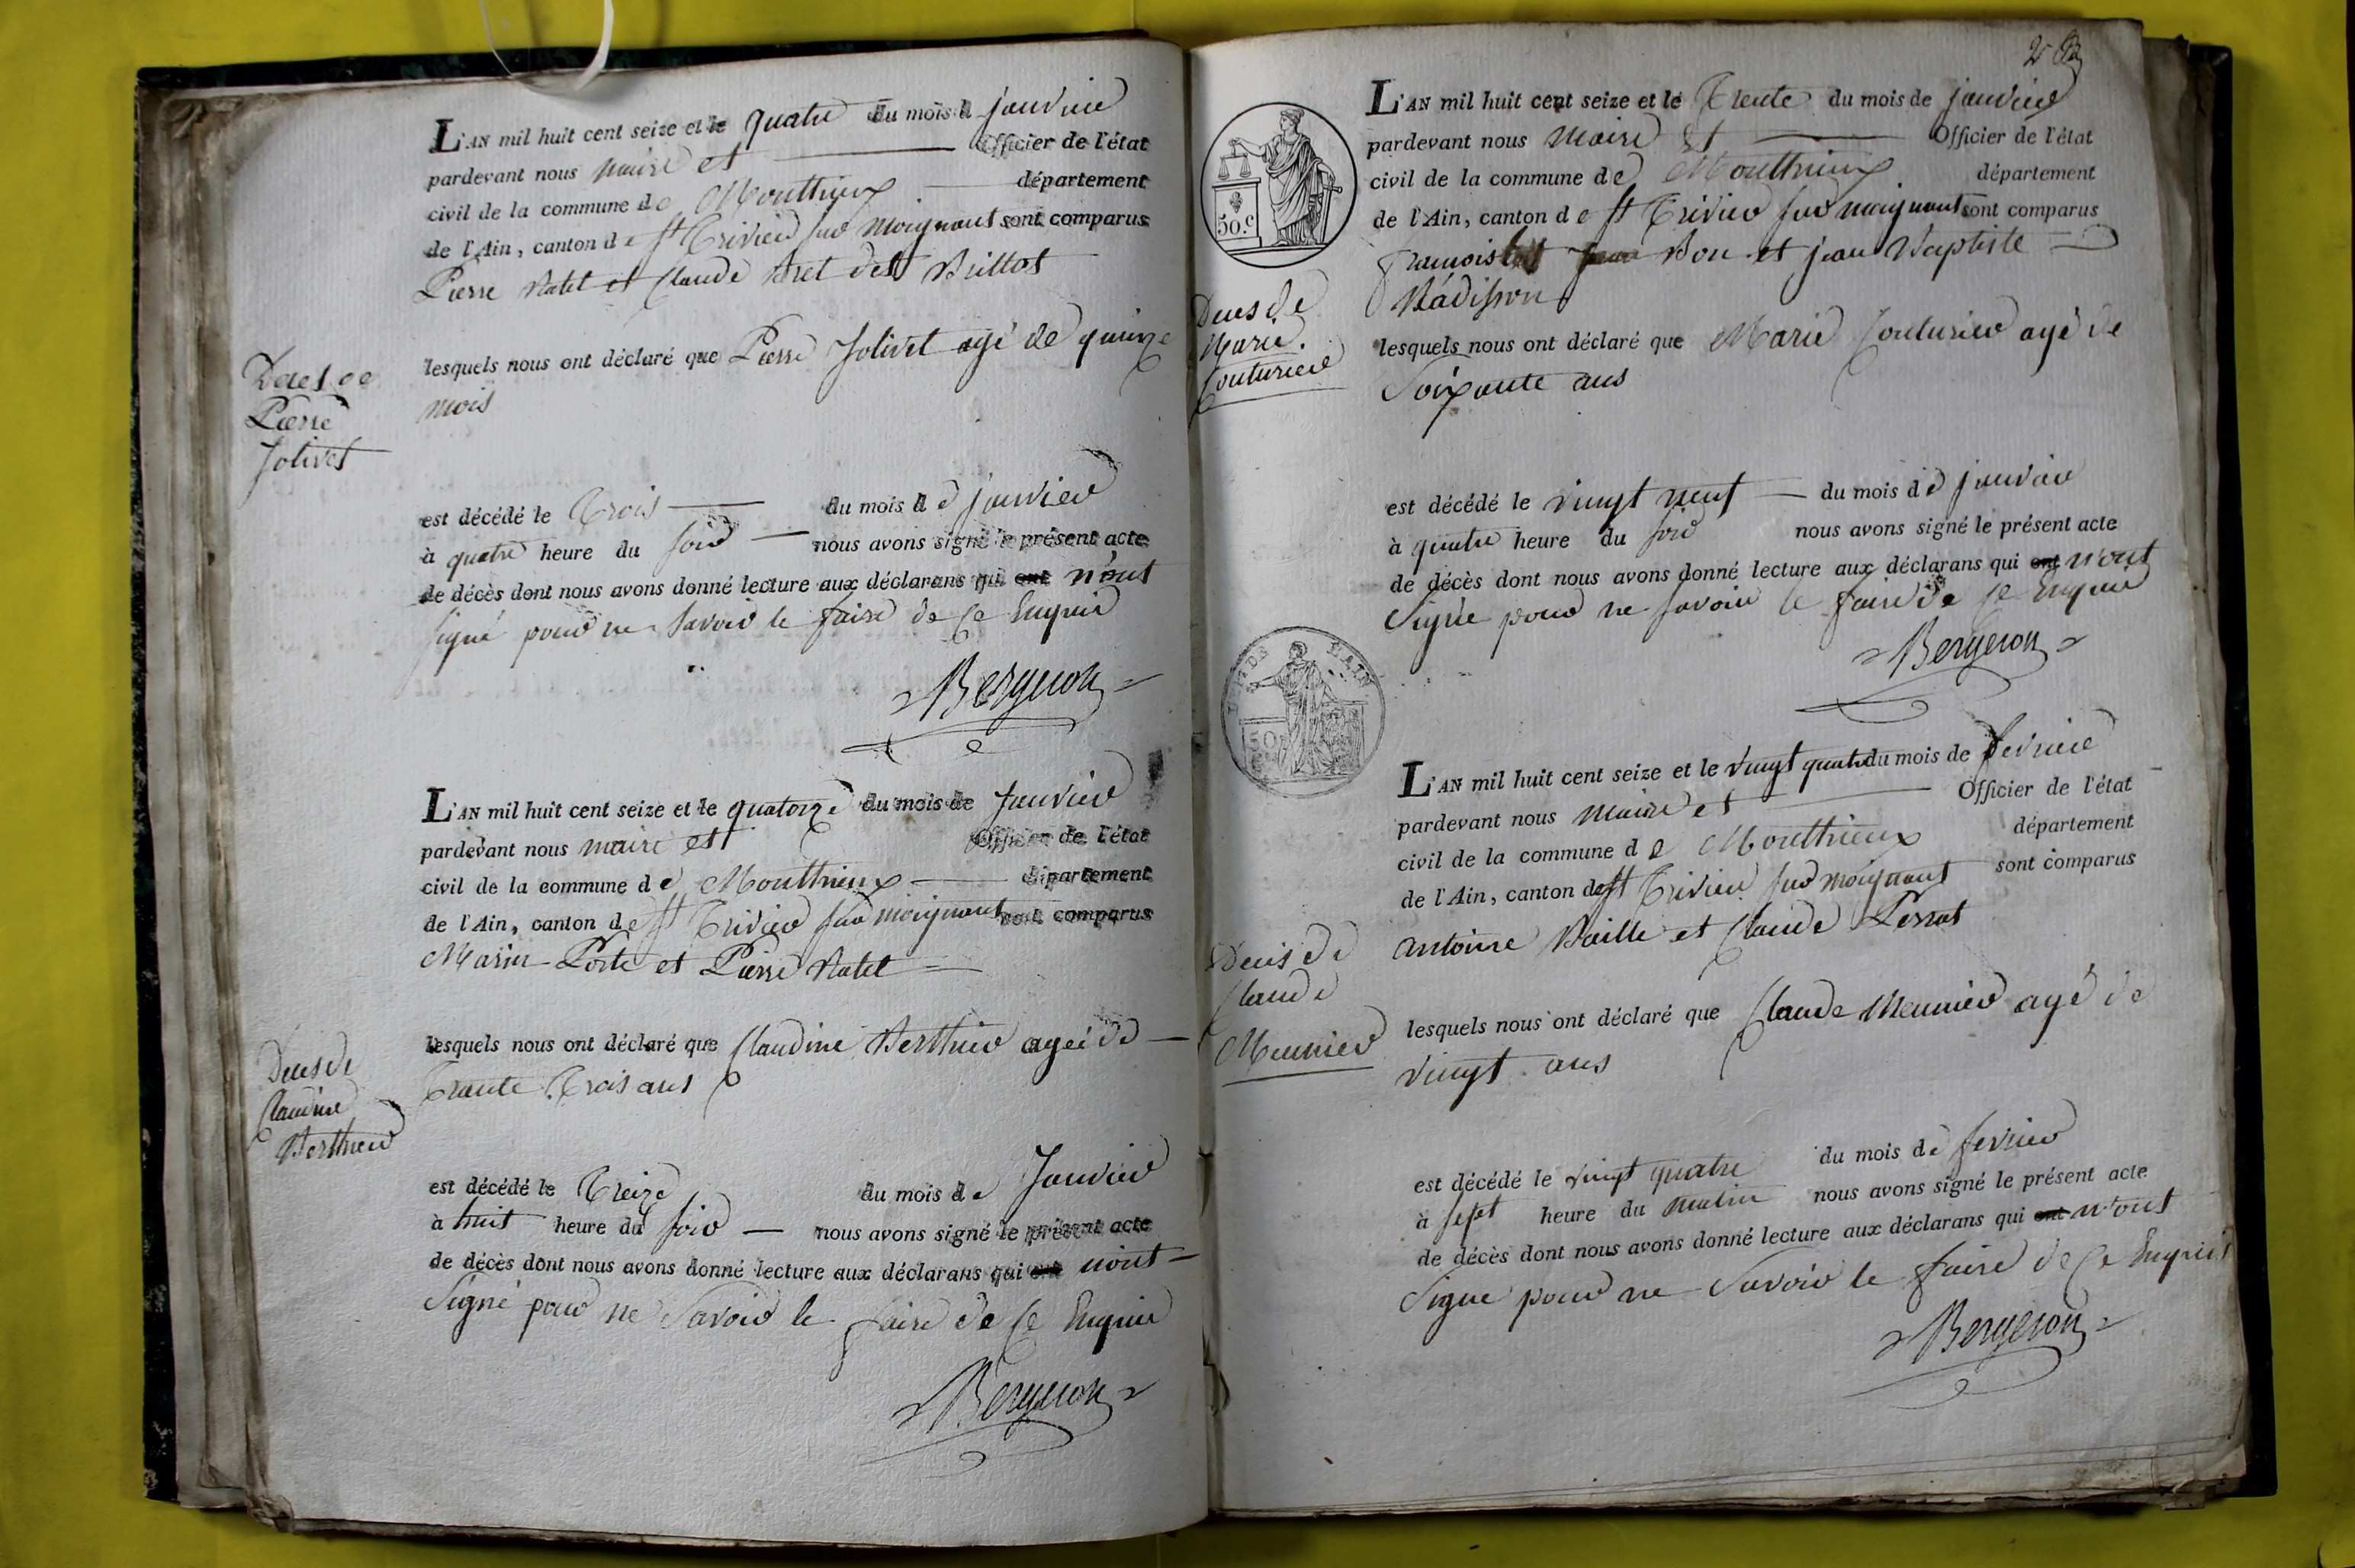 L'AN mil huit cent seize et le quatre du mois d janvier
pardevant nous maire et Officier de l'état
civil de la commune de Monthieux département
de l'Ain, canton de St Trivier sur moignans sont comparus
Pierre Ratel et Claude
lesquels nous ont déclaré que Pierre Jolivet agé de quinze
mois
Deces de
Pierre
Jolivet
est décédé le Trois du mois de janvier
à quatre heure du soir nous avons signé le présent acte
de décès dont nous avons donné lecture aux déclarans qui ont n'ont
signé pour ne savoir le faire de ce Enquis
Bergeron
L'AN mil huit cent seize et le quatorze du mois de Janvier
pardevant nous maire et Officier de l'état
civil de la commune de Monthieux département
de l'Ain, canton de St Trivier sur moignans sont comparus
Marin Porte et Pierre Ratel
lesquels nous ont déclaré que Claudine Berthier ageé de
Trante Trois ans
Deces de
Claudine
Berthier
est décédé le Treize du mois de Janvier
à huit heure du soir nous avons signé le présent acte
de décès dont nous avons donné lecture aux déclarans qui ont n'ont
Signé pour ne Savoir le faire de ce Enquis
Bergeron
2
L'AN mil huit cent seize et le Trente du mois de janvier
pardevant nous maire et Officier de l'état
civil de la commune de Monthieux département
de l'Ain, canton de St Trivier sur moignans sont comparus
francois Bon et jean Baptiste
50.c
Deces de
Marie
Couturier
lesquels nous ont déclaré que Marie Couturier agé de
Soixante ans
est décédé le vingt neuf du mois de janvier
à quatre heure du soir nous avons signé le présent acte
de décès dont nous avons donné lecture aux déclarans qui ont n'ont
Signe pour ne savoir le faire de ce Enquis
Bergeron
L'AN mil huit cent seize et le vingt quatre du mois de fevrier
pardevant nous maire et Officier de l'état
civil de la commune de Monthieux département
de l'Ain, canton de St Trivier sur moignans sont comparus
antoine Baille et Claude Perrat
Deces de
Claude
Meunier
lesquels nous ont déclaré que Claude Meunier agé de
vingt ans
est décédé le vingt quatre du mois de fevrier
à sept heure du matin nous avons signé le présent acte
de décès dont nous avons donné lecture aux déclarans qui ont n'ont
Signe pour ne Savoir le faire de ce Enquis
Bergeron